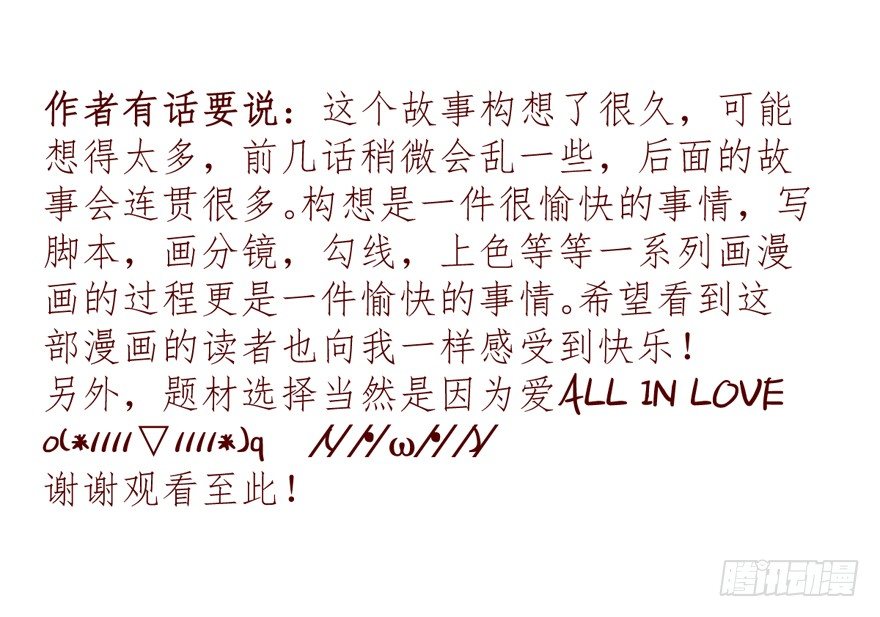 作者有话要说：这个故事构想了很久，可能
想得太多，前几话稍微会乱一些，后面的故
事会连贯很多。构想是一件很愉快的事情，写
脚本，画分镜，勾线，上色等等一系列画漫
画的过程更是一件愉快的事情。希望看到这
部漫画的读者也向我一样感受到快乐！
另外，题材选择当然是因为爱ALL IN LOVE
o(*////▽////*)q    /\/•/ω/•/\/
谢谢观看至此！
腾讯动漫